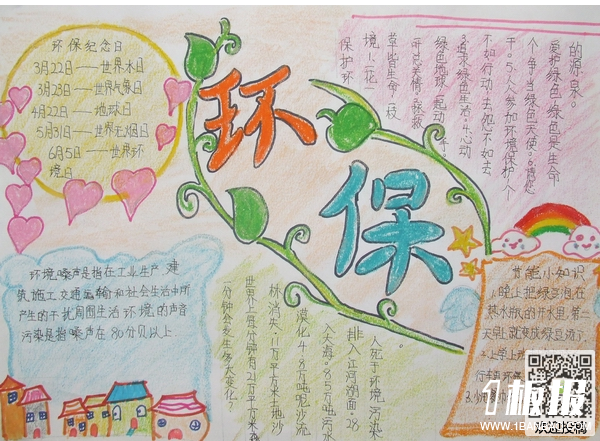 环保
环保纪念日
3月22日——世界水日
3月23日——世界气象日
4月22日——地球日
5月31日——世界无烟日
6月5日——世界环
境日
的源泉。
爱护绿色，绿色是生命
个个争当绿色天使。
干。5.人人参加环境保护，
不如行动去，怨不如去
3.追求绿色生活，
绿色地球，
草皆生命，枝
境1.一花
保护环
环境噪声是指在工业生产、建
筑施工、交通运输和社会生活中所
产生的干扰周围生活环境的声音
污染是指噪声在80分贝以上
人死于环境污染
排入江河湖面；28
入大海。85万吨污水
漠化4.8万吨泥沙流
林消失，11万平方米土地沙
世界上每分钟有21万平方米森
一分钟会发生多大变化？
节能小知识
1.晚上把绿豆泡在
热水瓶的开水里，第二
天早上就变成绿豆汤了
2.上学上
行车
3.少
1板报
WWW.1BANBAO.COM
欢迎投稿